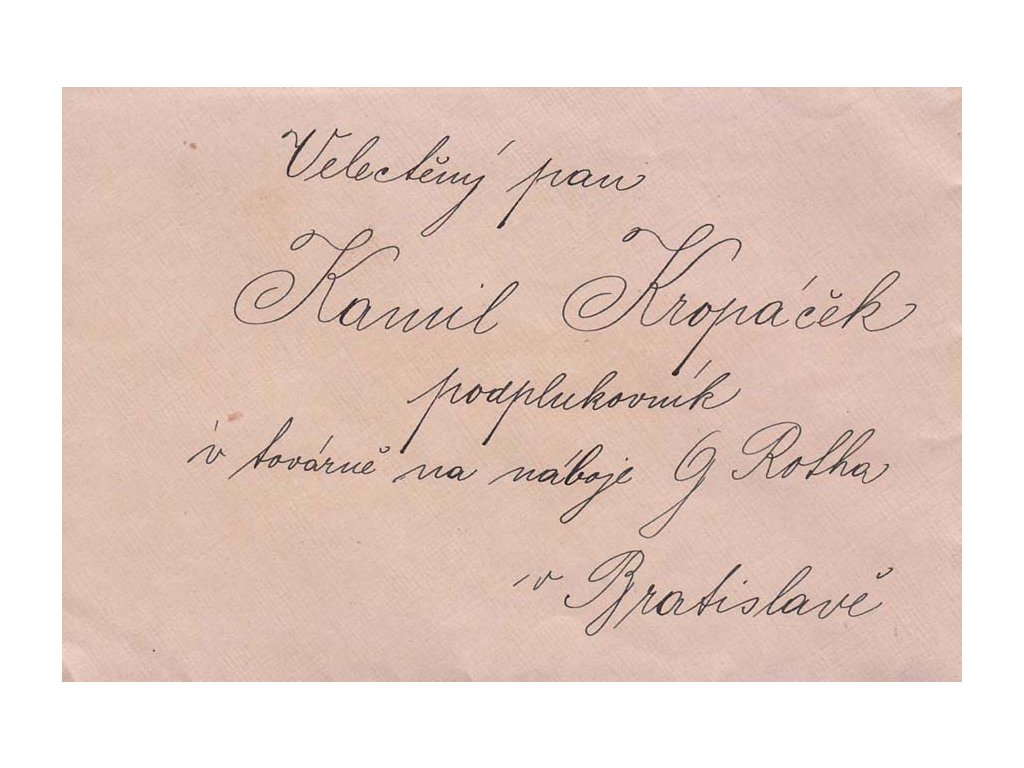 Velectěný pan
Kamil Kropáček
podplukovník
v továrně na náboje G Rotha
v Bratislavě